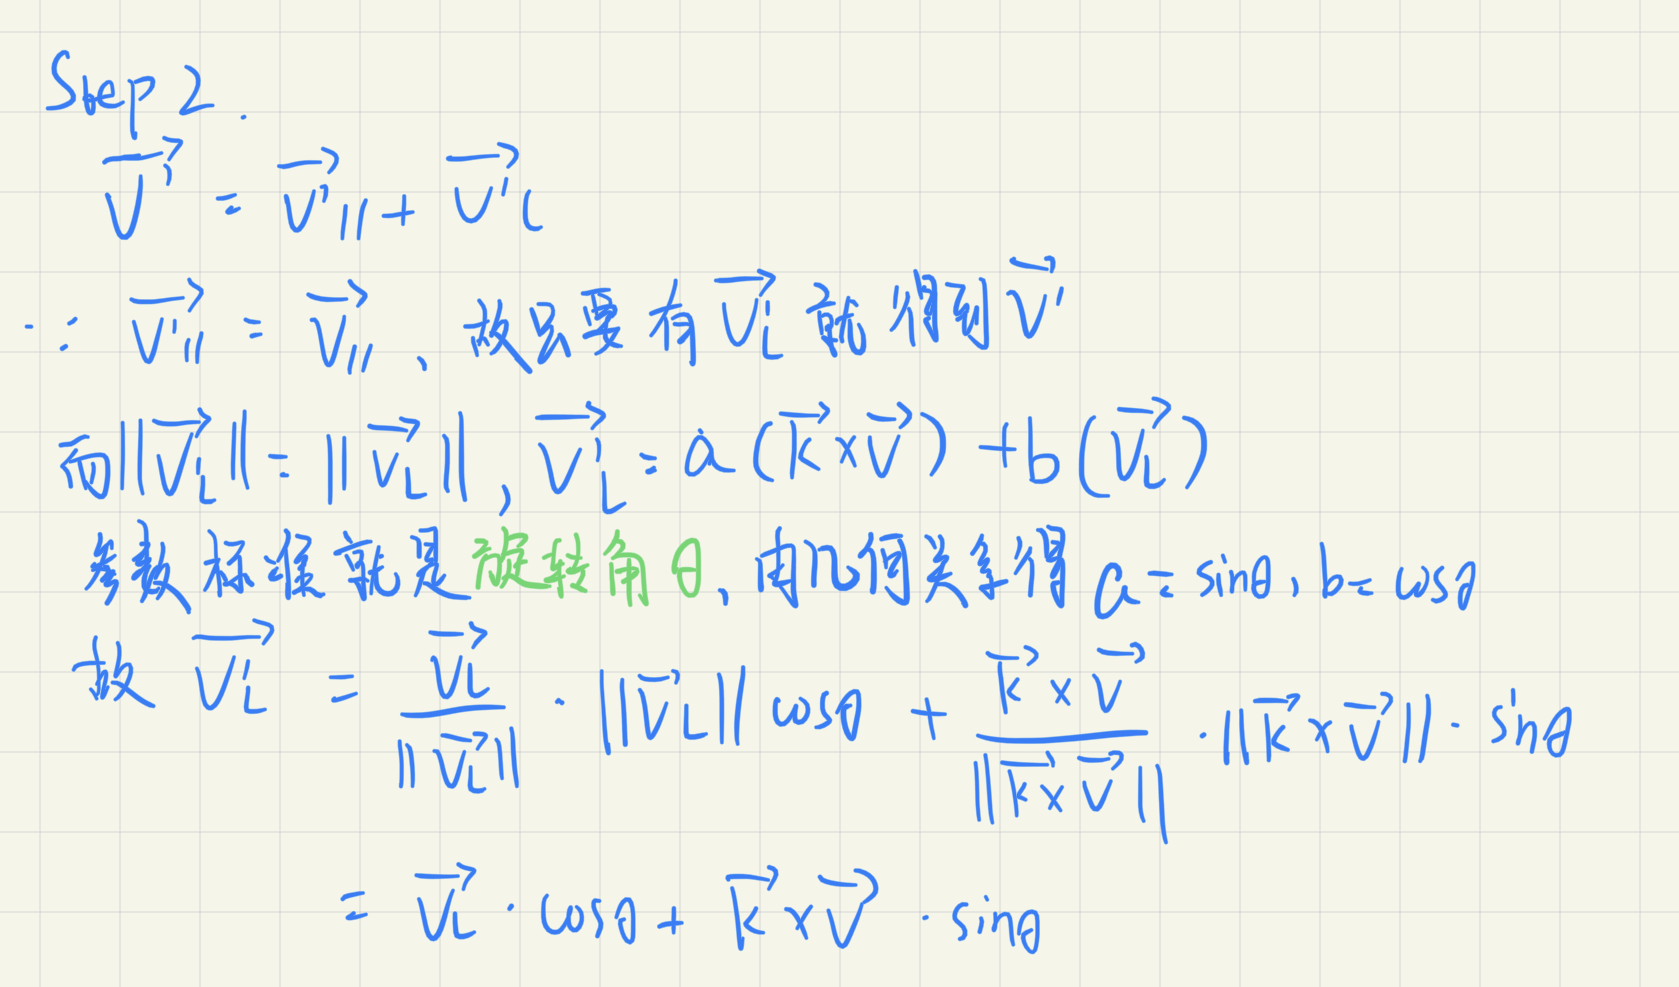 Step 2.
$\vec{V'} = \vec{V'}_{//} + \vec{V'}_{\perp}$
∵ $\vec{V'}_{//} = \vec{V}_{//}$、故只要有 $\vec{V'_{\perp}}$ 就得到 $\vec{V'}$
而 $\|\vec{V'_{\perp}}\| = \|\vec{V_{\perp}}\|$, $\vec{V'_{\perp}} = a(\vec{k} \times \vec{V}) + b(\vec{V_{\perp}})$
参数标准就是旋转角θ、由几何关系得 $a = \sin\theta, b = \cos\theta$
故 $\vec{V'_{\perp}} = \frac{\vec{V_{\perp}}}{\|\vec{V_{\perp}}\|} \cdot \|\vec{V_{\perp}}\| \cos\theta + \frac{\vec{k} \times \vec{V}}{\|\vec{k} \times \vec{V}\|} \cdot \|\vec{k} \times \vec{V}\| \cdot \sin\theta$
$= \vec{V_{\perp}} \cdot \cos\theta + \vec{k} \times \vec{V} \cdot \sin\theta$